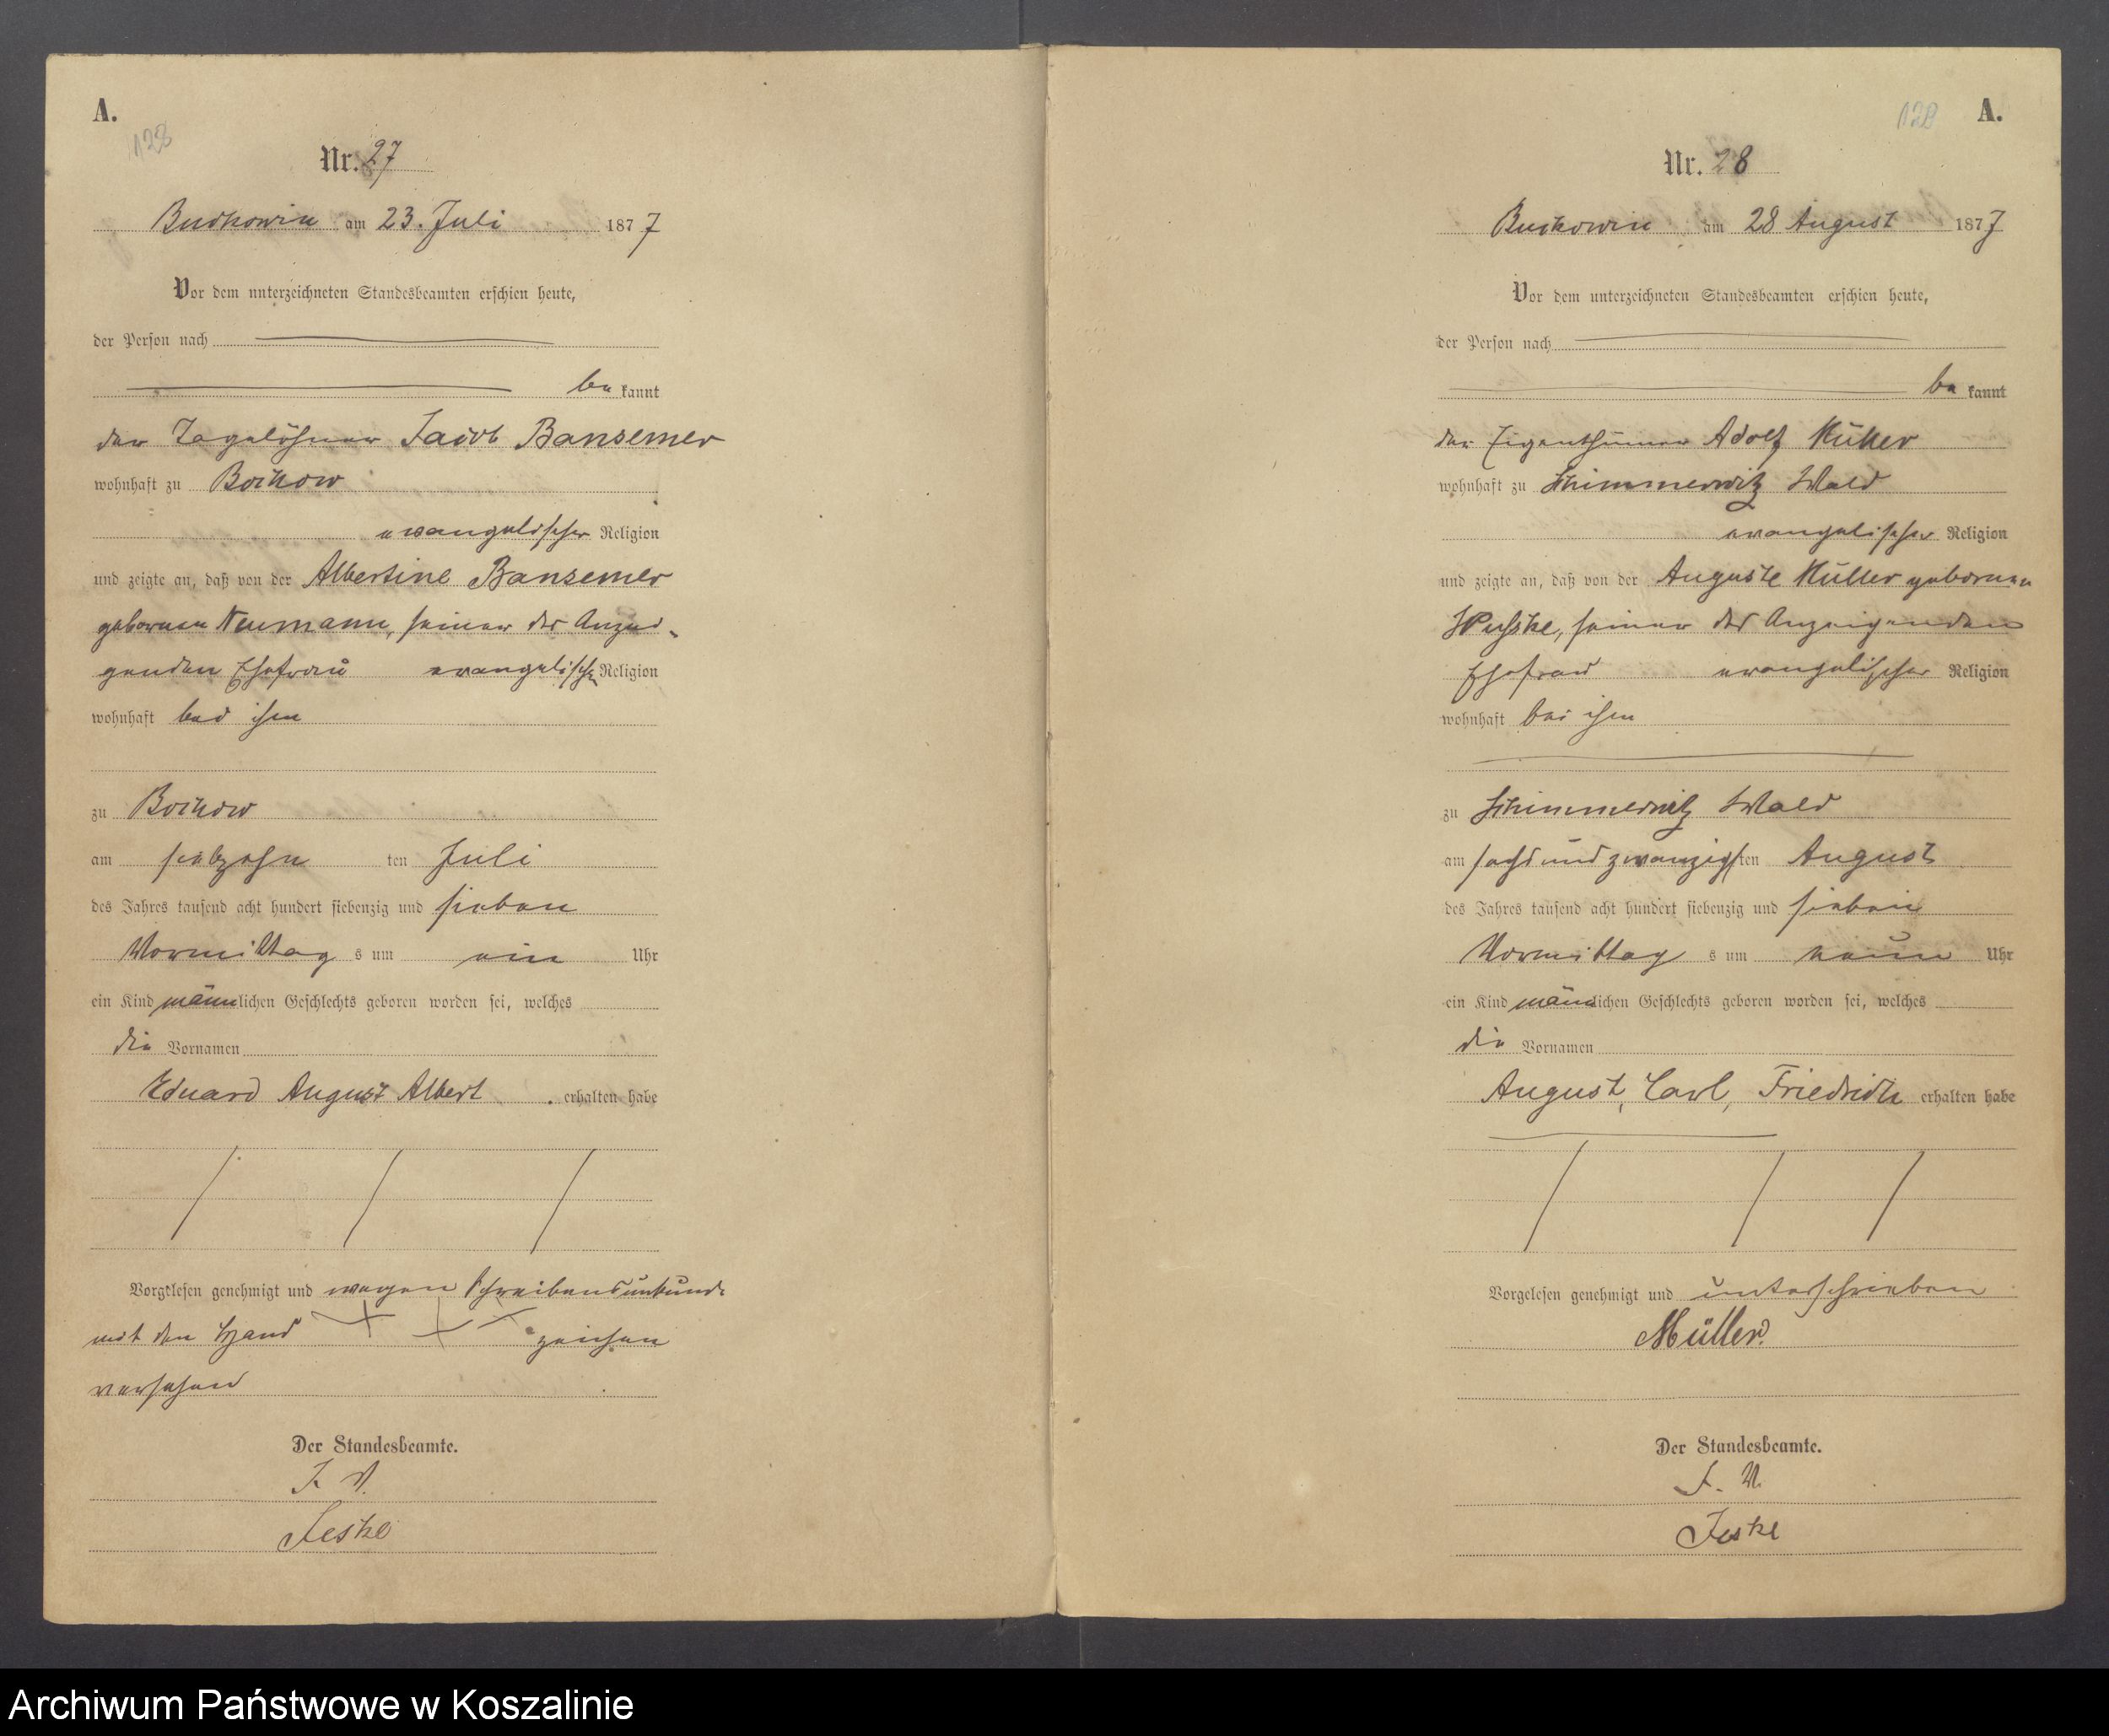 A.
128
Nr. 27
Buckowin am 23. Juli 1877
Vor dem unterzeichneten Standesbeamten erschien heute,
der Person nach
be kannt
der Tagelöhner Jacob Bansemer
wohnhaft zu Bochow
evangelischer Religion
und zeigte an, daß von der Albertine Bansemer
geborenen Neumann, seiner des Anzei-
genden Ehefrau evangelischer Religion
wohnhaft bei ihm
zu Bochow
am siebzehn ten Juli
des Jahres tausend acht hundert siebenzig und sieben
Vormittag s um ein Uhr
ein Kind männlichen Geschlechts geboren worden sei, welches
die Vornamen
Eduard August Albert erhalten habe
Vorgelesen genehmigt und wegen Schreibensunkunde
mit den Hand zeichen
versehen
Der Standesbeamte.
J. V.
Jeske
A.
Nr. 28
Buckowin am 28 August 1877
Vor dem unterzeichneten Standesbeamten erschien heute,
der Person nach
be kannt
der Eigenthümer Adolf Müller
wohnhaft zu Schimmerwitz Wald
evangelischer Religion
und zeigte an, daß von der Auguste Müller geborenen
seiner des Anzeigenden
Ehefrau evangelischer Religion
wohnhaft bei ihm
zu Schimmerwitz Wald
am sechs und zwanzigsten August
des Jahres tausend acht hundert siebenzig und sieben
Vormittag s um neun Uhr
ein Kind männlichen Geschlechts geboren worden sei, welches
die Vornamen
August, Carl, Friedrich erhalten habe
Vorgelesen genehmigt und unterschrieben
Müller.
Der Standesbeamte.
J. V.
Jeske
Archiwum Państwowe w Koszalinie